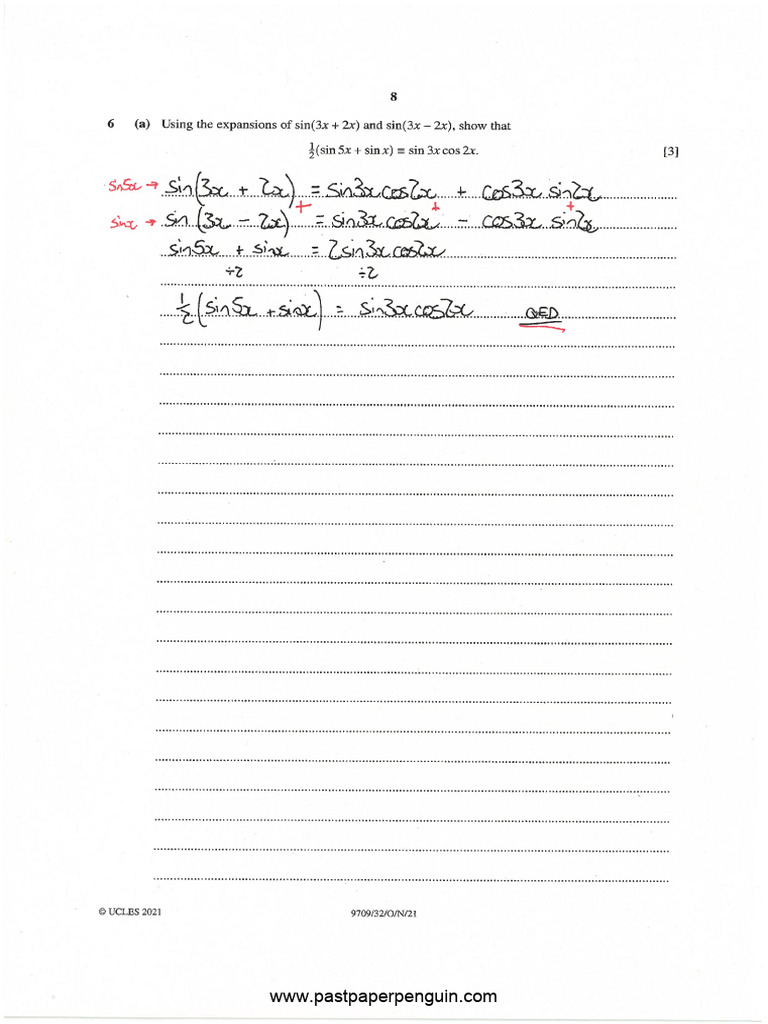 8
6 (a) Using the expansions of sin(3x + 2x) and sin(3x − 2x), show that
½(sin 5x + sin x) ≡ sin 3x cos 2x. [3]
sin5x → sin(3x + 2x) = sin3x cos2x + cos3x sin2x
+ + +
sinx → sin(3x − 2x) = sin3x cos2x − cos3x sin2x
sin5x + sinx = 2sin3xcos2x
÷2 ÷2
½(sin5x + sinx) = sin3xcos2x QED
© UCLES 2021 9709/32/O/N/21
www.pastpaperpenguin.com